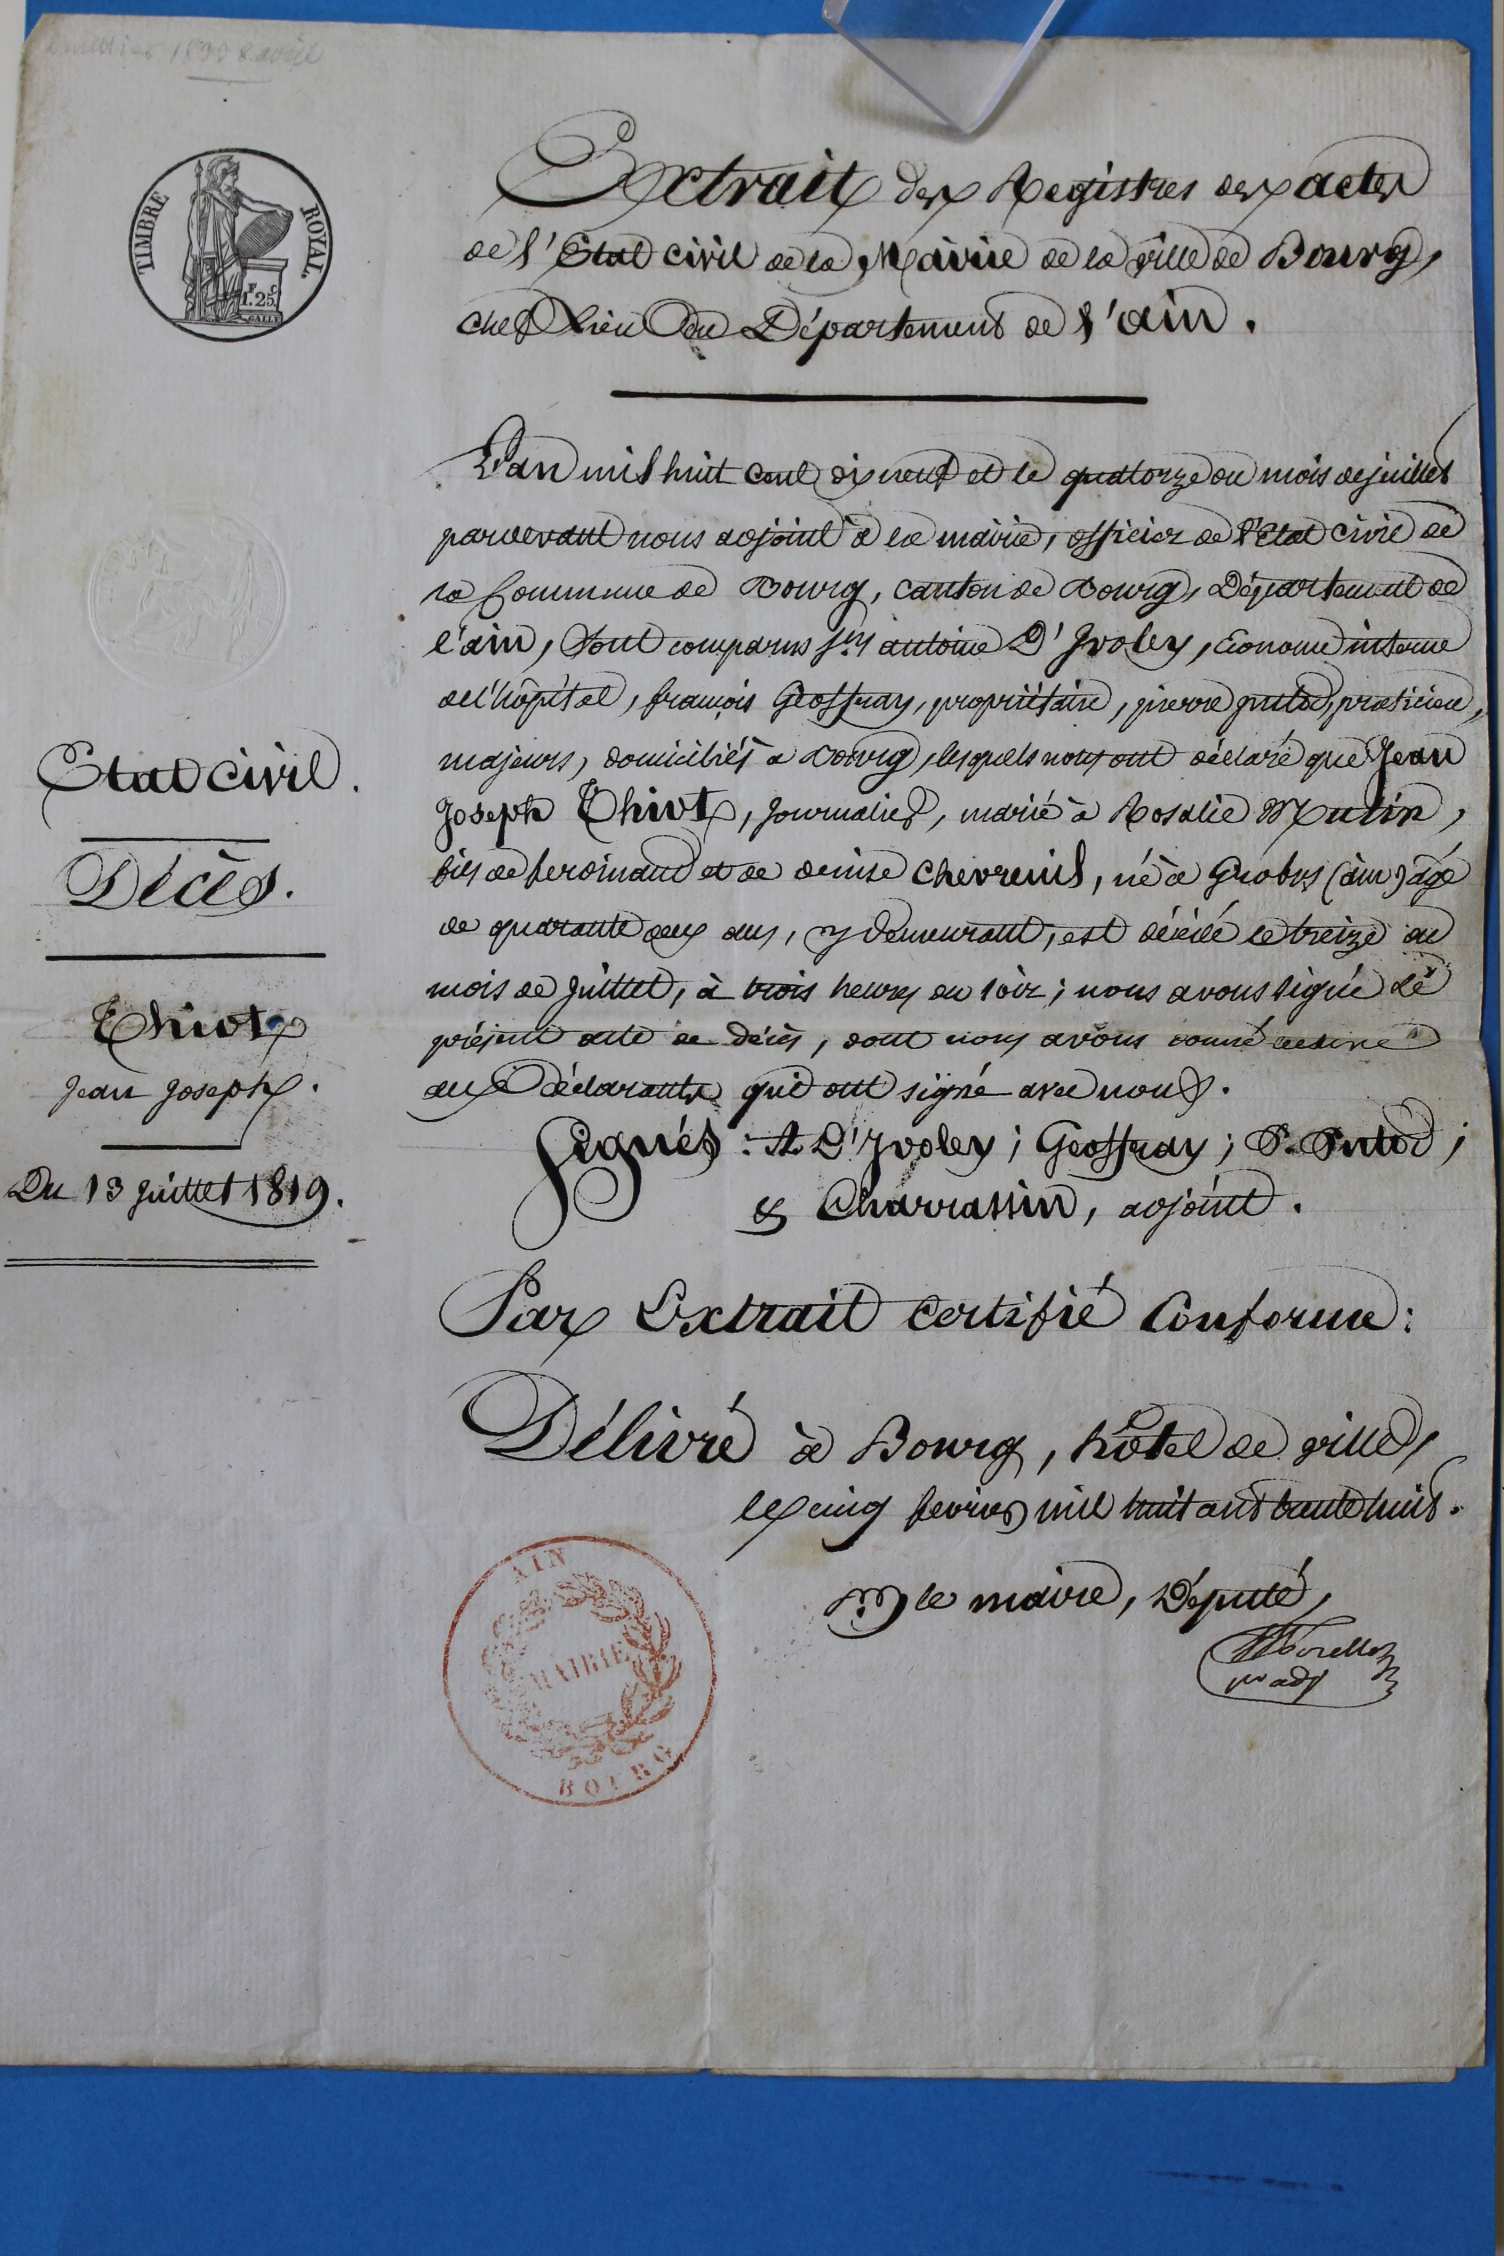 TIMBRE ROYAL
1F. 25c
Extrait des Registres des actes
de l'Etat civil de la Mairie de la ville de Bourg,
chef lieu du Département de l'ain.
L'an mil huit cent dix neuf et le quatorze du mois de juillet
pardevant nous adjoint à la mairie, officier de l'Etat civil de
la Commune de Bourg, canton de Bourg, Département de
l'ain, sont comparus Srs antoine D'Ivoley, économe interne
de l'hôpital, françois Geoffray, propriétaire, pierre putod, praticien,
majeurs, domiciliés à Bourg, lesquels nous ont déclaré que Jean
Joseph Thivot, Journalier, marié à Rosalie Mutin,
fils de ferdinand et de denise chevreuil, né à Grobos (ain) agé
de quarante deux ans, y demeurant, est décédé le treize du
mois de juillet, à trois heures du soir; nous avons signé le
présent acte de décès, dont nous avons donné lecture
aux Déclarants qui ont signé avec nous.
Signés: A. D'Ivoley; Geoffray; P. Putod;
& Charrassin, adjoint.
Par Extrait certifié Conforme:
Délivré à Bourg, hôtel de ville,
le cinq fevrier mil huit cent trente huit.
le maire, Député,
adj
Etat civil.
Décès.
Thivot
Jean Joseph.
Du 13 Juillet 1819.
AIN
MAIRIE
BOURG